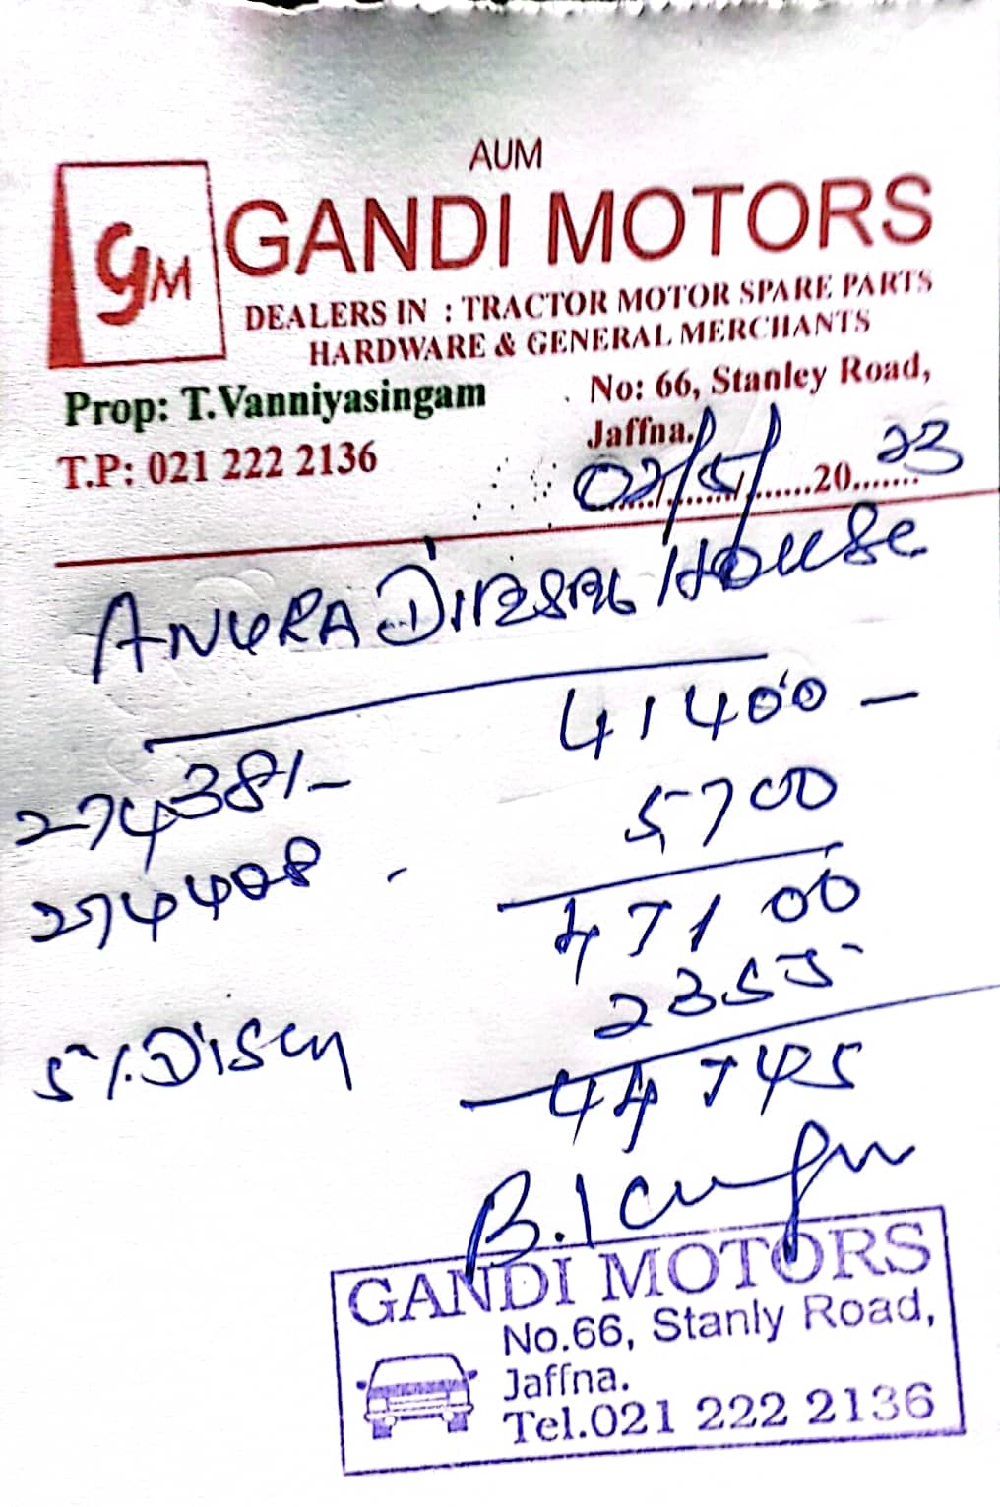 AUM
GM
GANDI MOTORS
DEALERS IN : TRACTOR MOTOR SPARE PARTS
HARDWARE & GENERAL MERCHANTS
Prop: T.Vanniyasingam
No: 66, Stanley Road,
Jaffna.
T.P: 021 222 2136
02/5/......20 23
ANURA DIESEL House
274381/- 41400 -
274408 - 5700
47100
5%. Discn 2355
44745
GANDI MOTORS
No.66, Stanly Road,
Jaffna.
Tel.021 222 2136